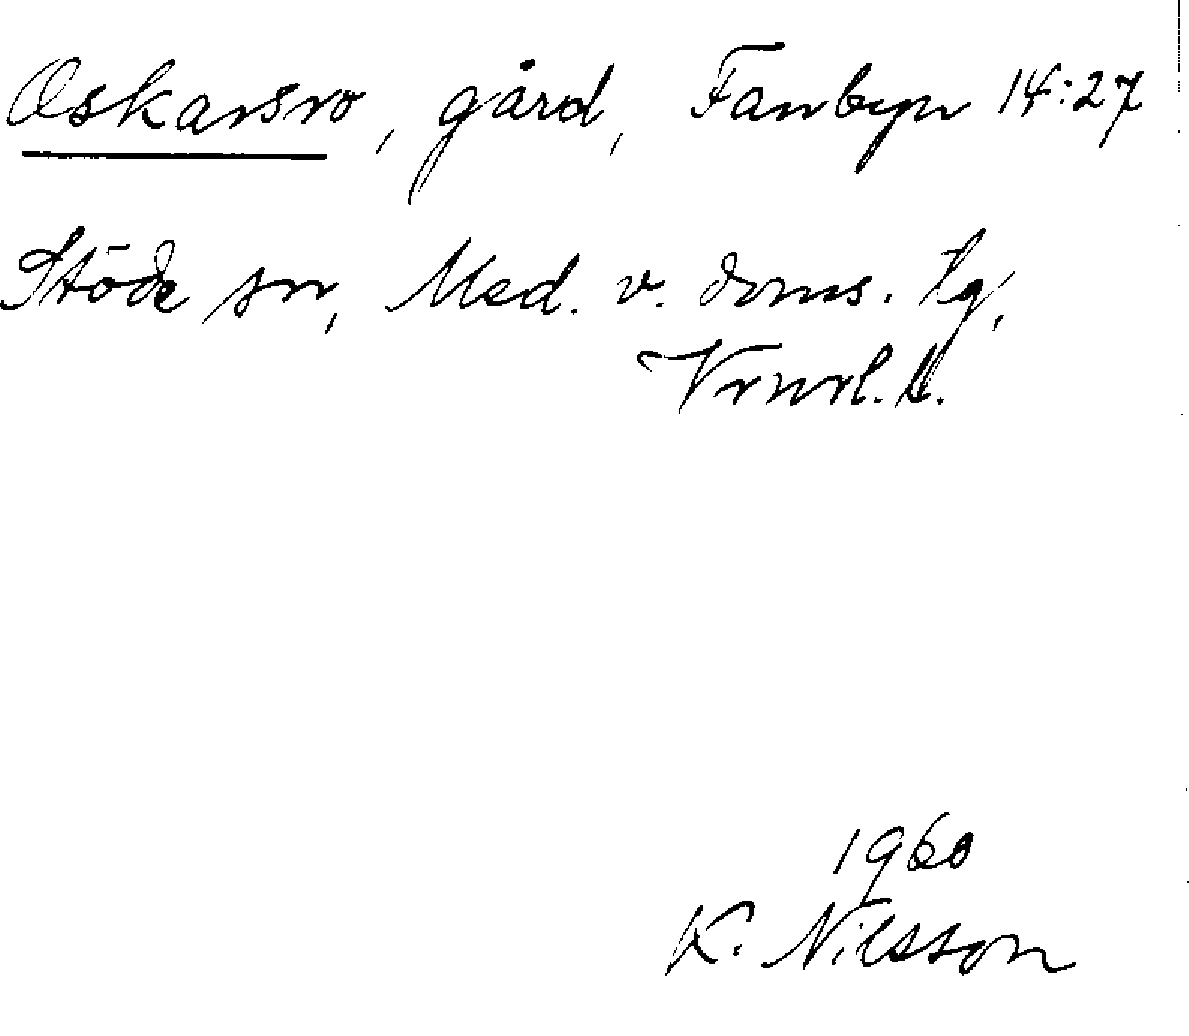 Oskarsro, gård, Fanbyn 14:27
Stöde sn, Med. v. doms. lg,
Vrnrl. N.
1960
K. Nilsson